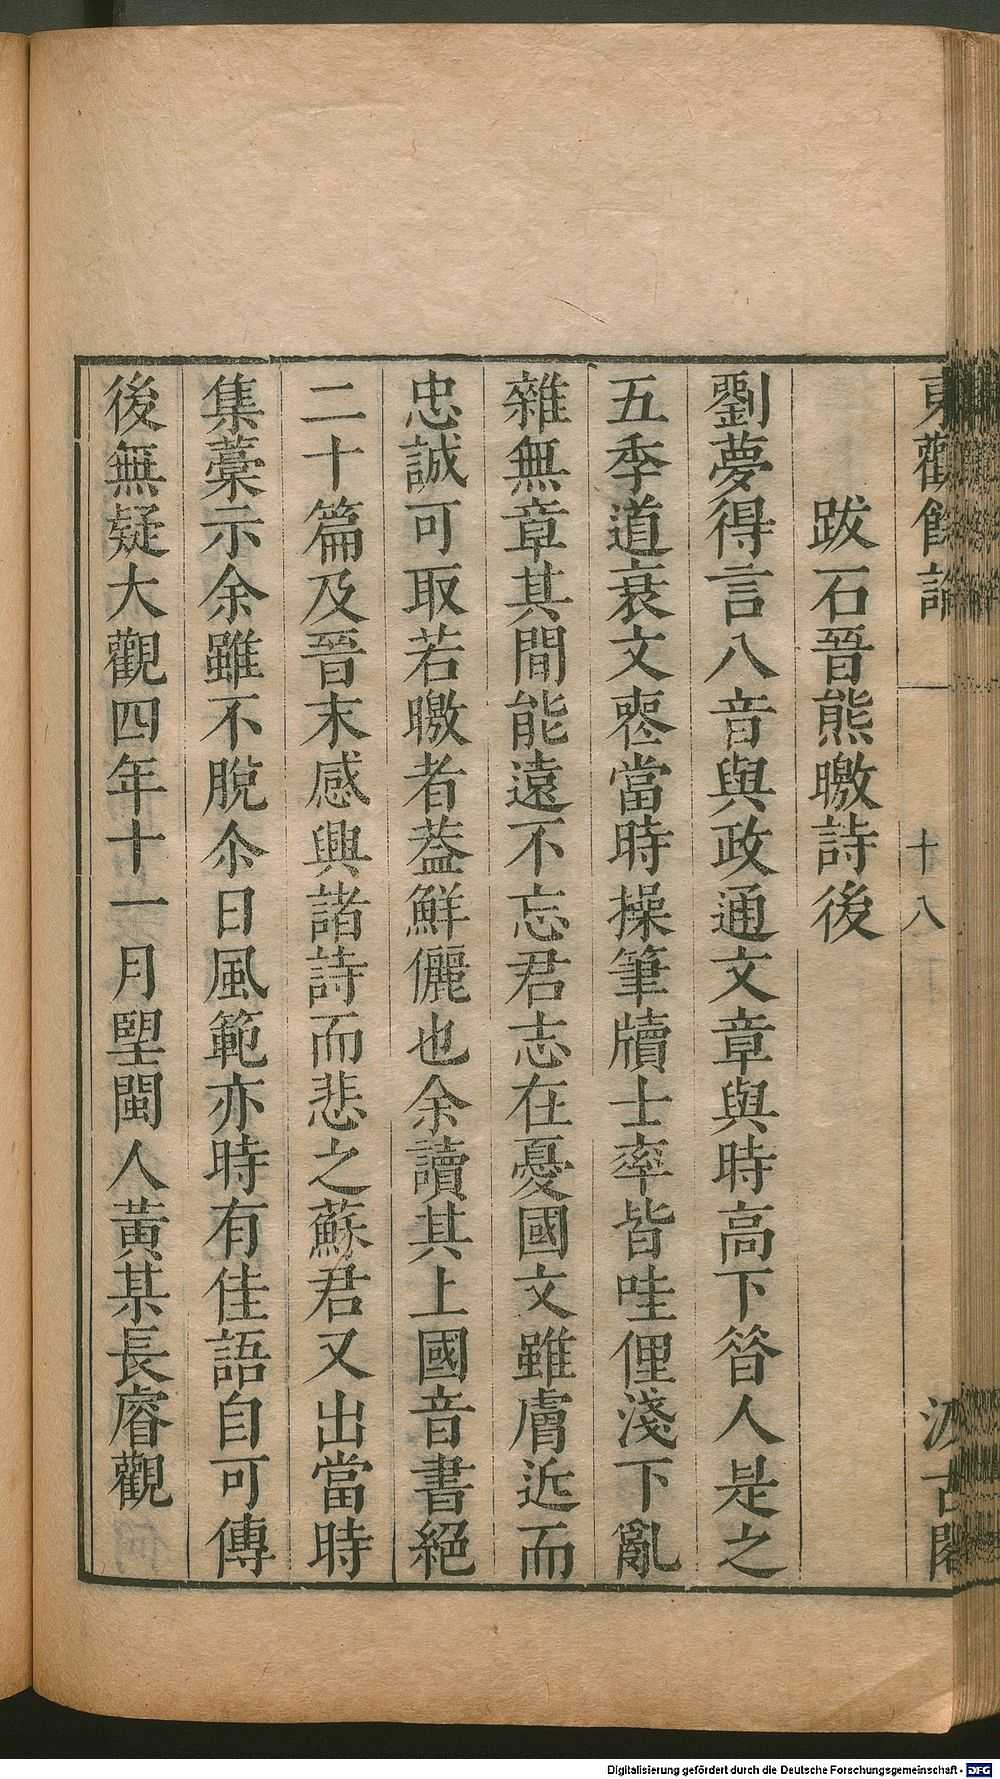 東觀餘論 十八 汲古閣
跋石晉熊皦詩後
劉夢得言八音與政通文章與時高下䇿人是之
五季道衰文喪當時操筆牘士率皆哇俚淺下亂
雜無章其間能遠不忘君志在憂國文雖膚近而
忠誠可取若皦者葢鮮儷也余讀其上國音書絕
二十篇及晉末感興諸詩而悲之蘇君又出當時
集藁示余雖不脫尒日風範亦時有佳語自可傳
後無疑大觀四年十一月朢閩人黃某長睿觀
Digitalisierung gefördert durch die Deutsche Forschungsgemeinschaft - DFG